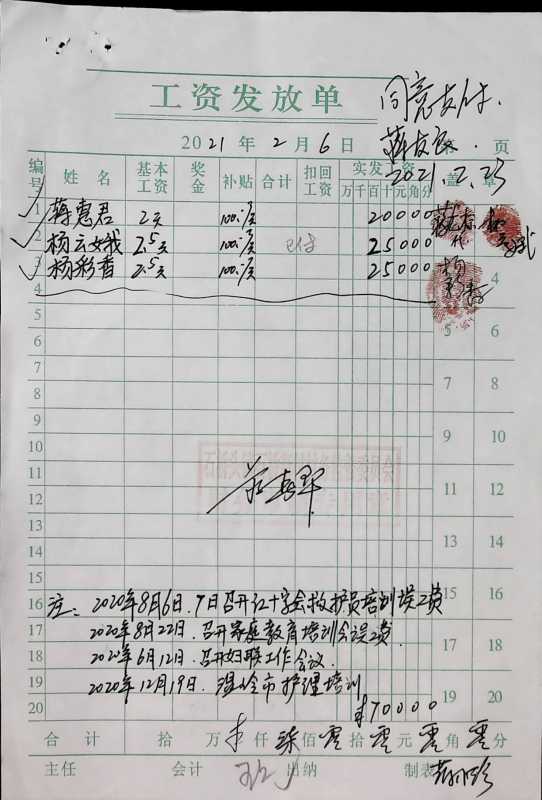 工资发放单
同意支付.
2021年2月6日
第 页
2021.2.23
编号 姓名 基本工资 奖金 补贴 合计 扣回工资 实发工资 盖章
万千百十元角分
1 蒋惠君 2天 100.-/天 20000
2 杨云娥 2.5天 100.-/天 已付 25000
3 杨彩香 2.5天 100.-/天 25000
4 4
5 5 6
6
7 7 8
8
9 9 10
10
11 11 12
12
13 13 14
14
15 15 16
16 注: 2020年8月6日.7日召开红十字会救护员培训误工费
17 2020年8月22日.召开家庭教育培训会误工费. 17 18
18 2020年6月12日.召开妇联工作会议.
19 2020年12月19日. 护理培训 19 20
20 ¥70000
合计 拾 万 仟 柒 佰 零 拾 零 元 零 角 零 分
主任 会计 出纳 制表